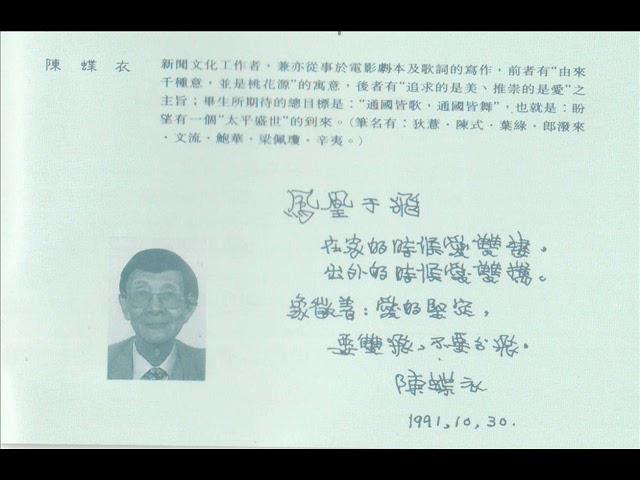 陳蝶衣
新聞文化工作者，兼亦從事於電影劇本及歌詞的寫作，前者有“由來
千種意，並是桃花源”的寓意，後者有“追求的是美、推崇的是愛”之
主旨；畢生所期待的總目標是：“通國皆歌，通國皆舞”，也就是：盼
望有一個“太平盛世”的到來。（筆名有：狄薏·陳式·葉綠·郎潑來
·文流·鮑華·梁佩瓊·辛夷。）
鳳凰于飛
在家的時候愛雙棲。
出外的時候愛雙攜。
象徵着：愛的堅定，
要雙飛，不要分飛。
陳蝶衣
1991,10,30.